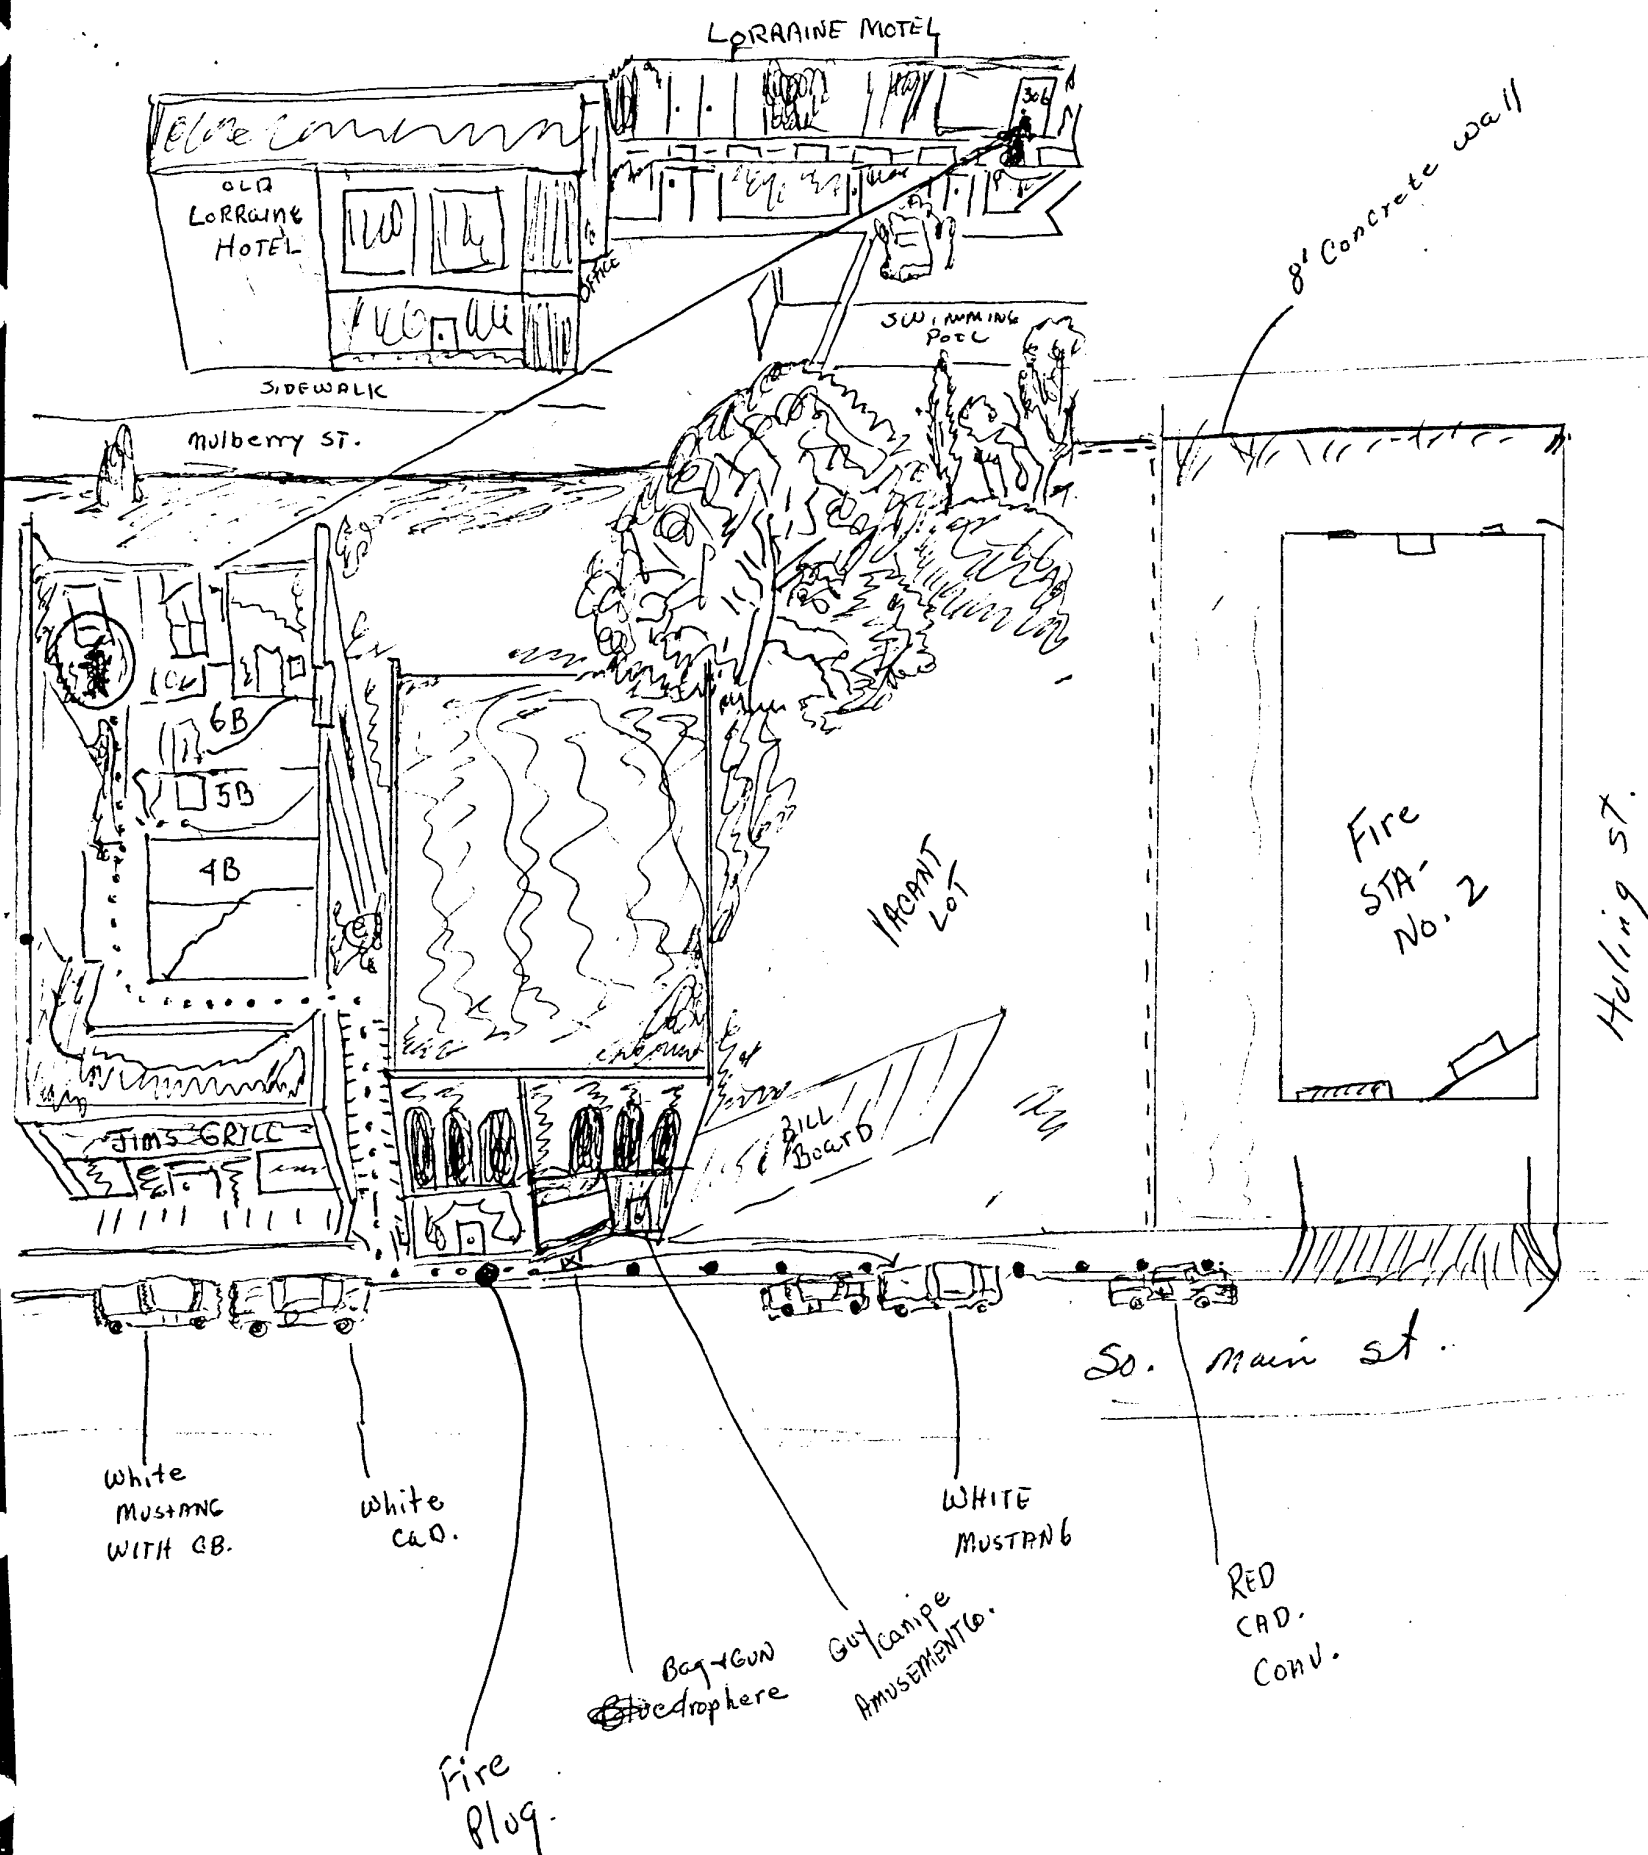 LORRAINE MOTEL
306
OLD
LORRAINE
HOTEL
OFFICE
SWIMMING
POOL
8' Concrete wall
SIDEWALK
Mulberry ST.
6B
5B
4B
VACANT
LOT
Fire
STA-
No. 2
Huling ST.
JIMS GRILL
BILL
BoarD
So. Main st.
White
MUSTANG
WITH CB.
White
CaD.
WHITE
MUSTANG
RED
CAD.
CONV.
Bag + GUN
dropHere
GUY Canipe
AMUSEMENT Co.
Fire
Plug.